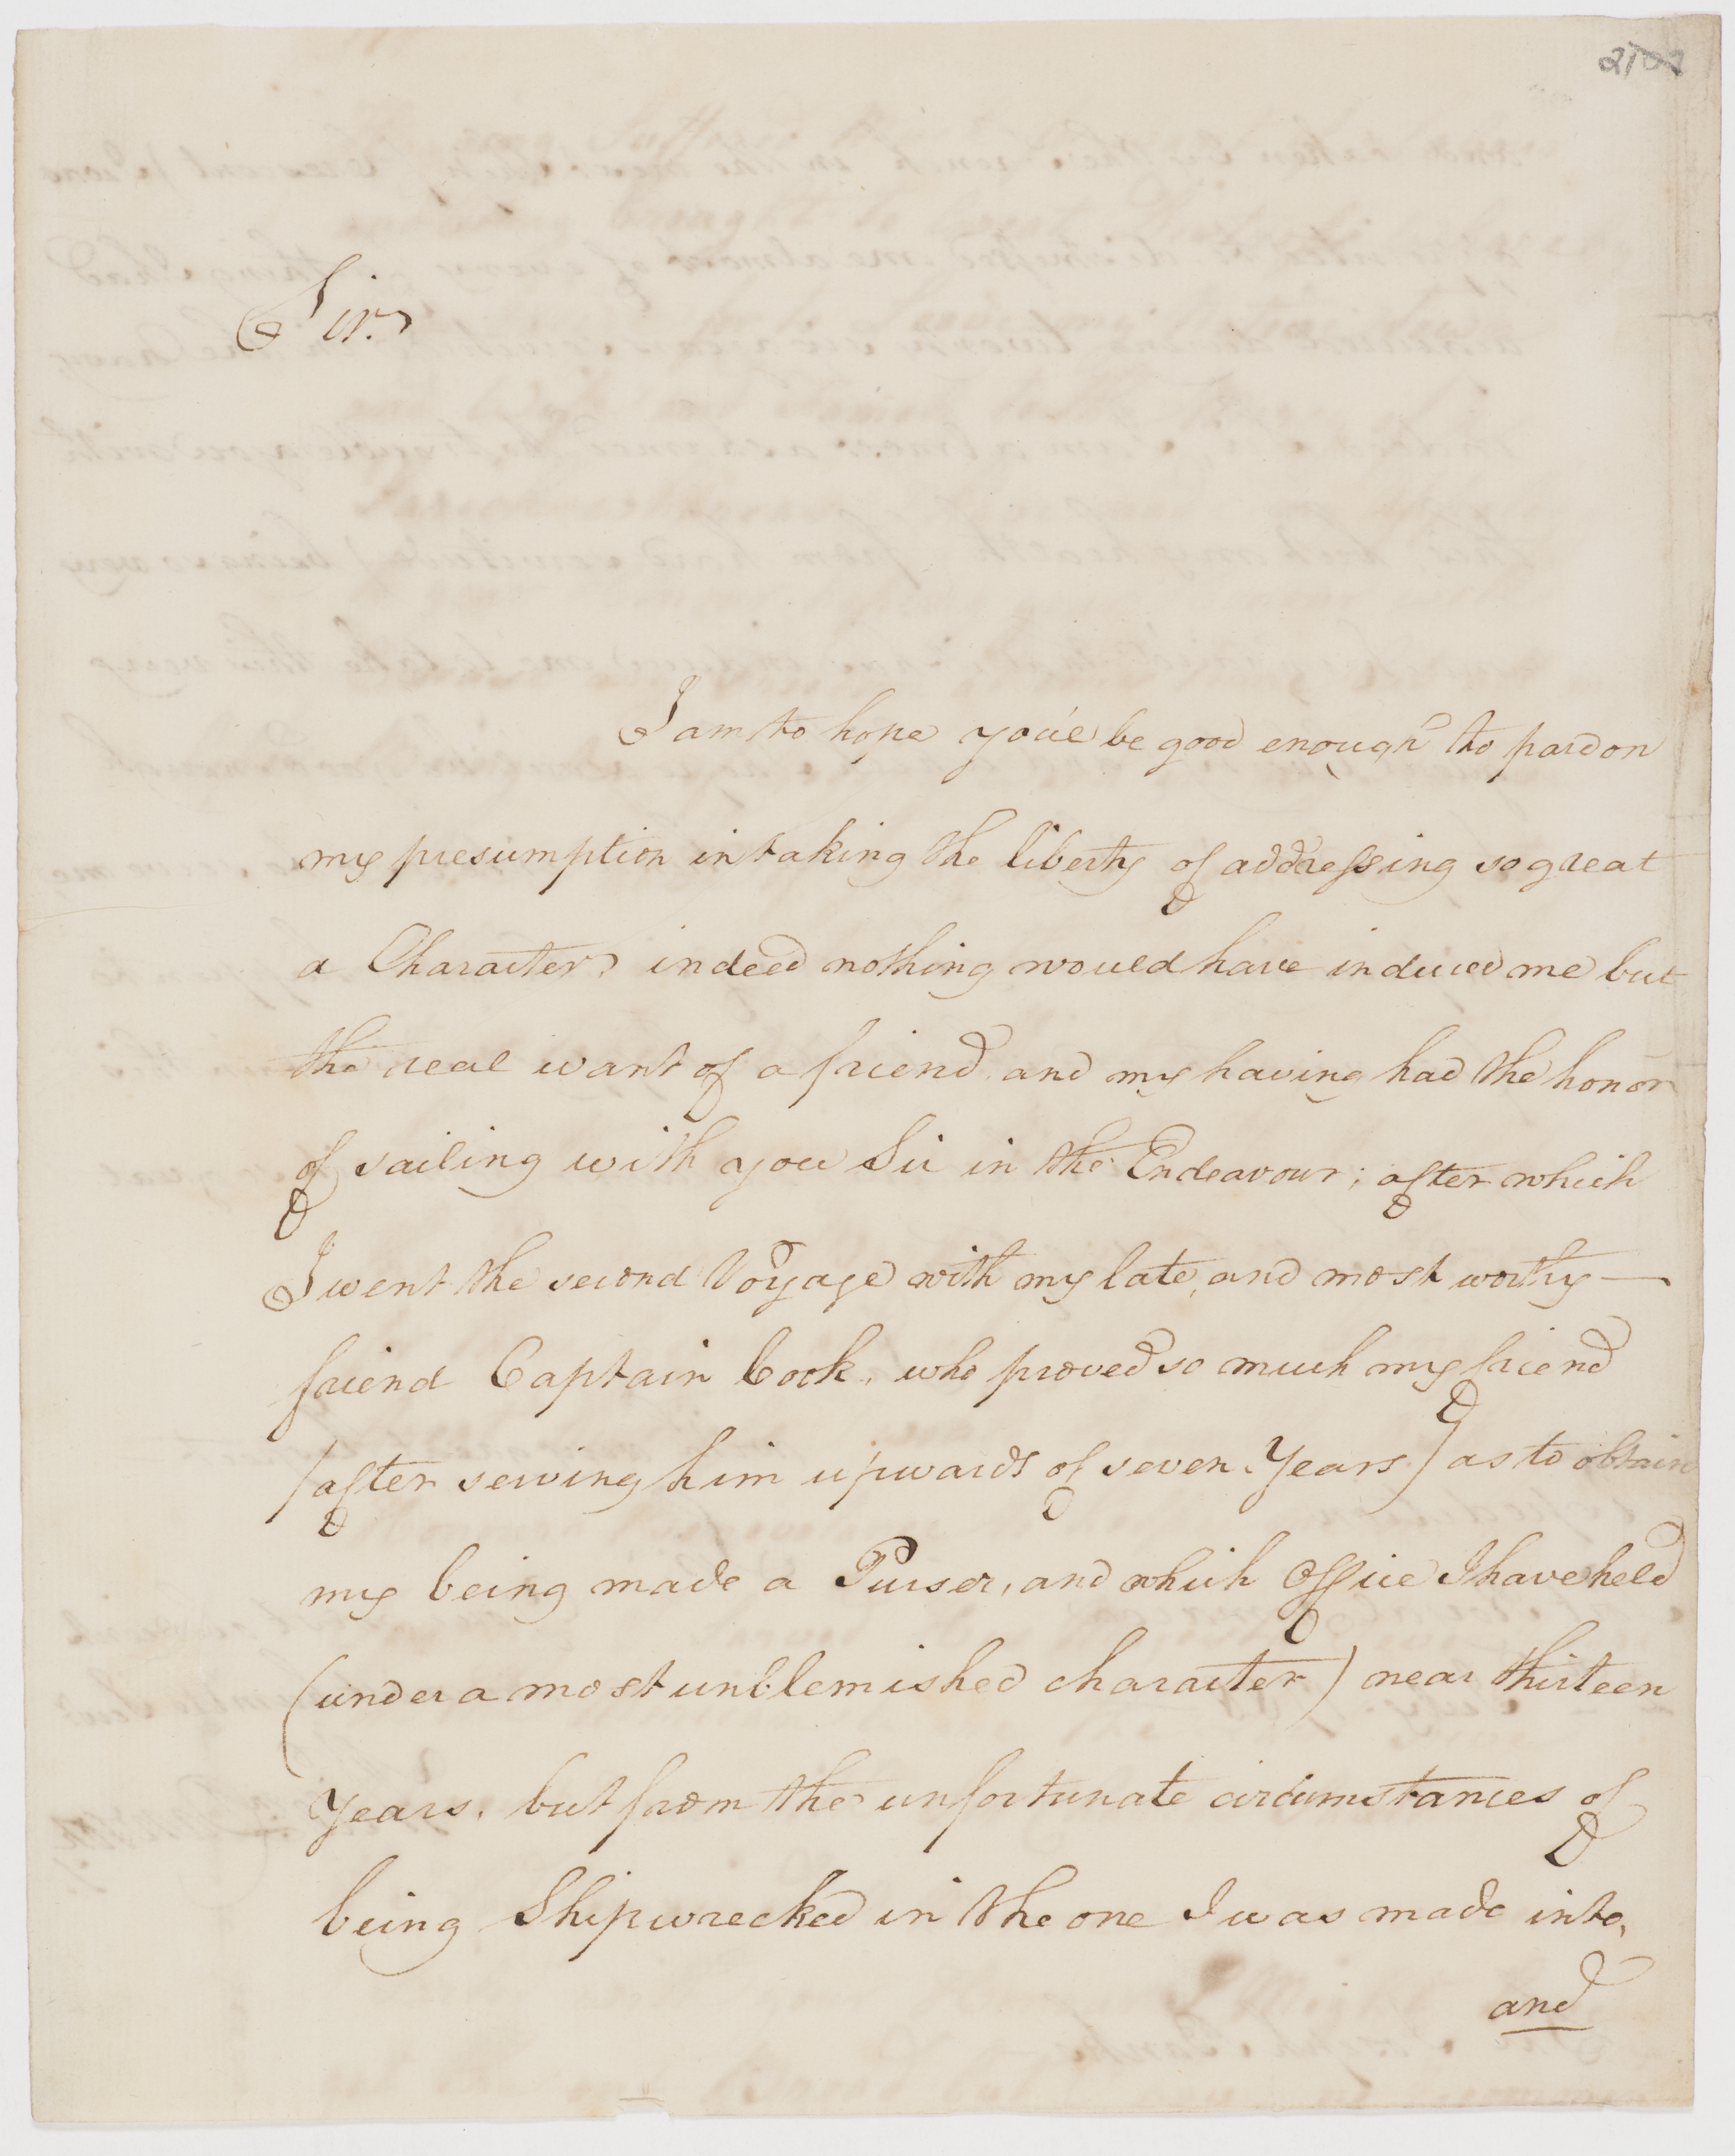 Sir.
I am to hope you'l be good enough to pardon
my presumption in taking the liberty of addressing so great
a Character, indeed nothing would have induced me but
the real want of a friend and my having had the honor
of sailing with you Sir in the Endeavour; after which
I went the second Voyage with my late, and most worthy —
friend Captain Cook, who proved so much my friend
(after serving him upwards of seven Years) as to obtain
my being made a Purser, and which Office I have held
(under a most unblemished character) near thirteen
Years, but from the unfortunate circumstances of
being Shipwrecked in the one I was made into,
and